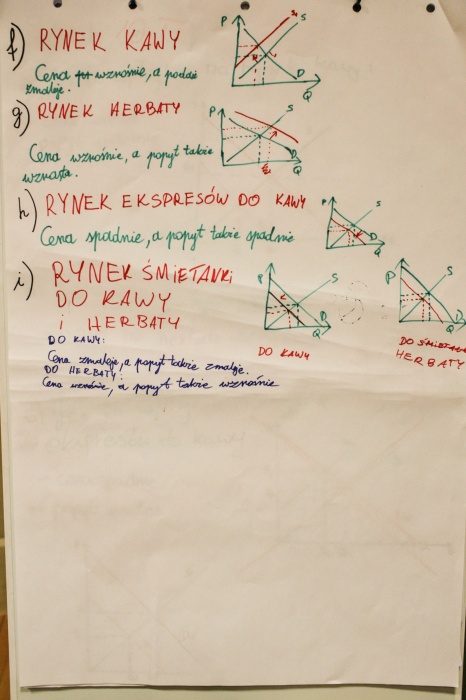 f) RYNEK KAWY
Cena wzrośnie, a podaż
zmaleje.
P
S₁
S
D
Q
g) RYNEK HERBATY
Cena wzrośnie, a popyt także
wzrasta.
P
S
D
Q
h) RYNEK EKSPRESÓW DO KAWY
Cena spadnie, a popyt także spadnie
P
S
D
Q
i) RYNEK ŚMIETANKI
DO KAWY
I HERBATY
P
S
D
Q
DO KAWY
P
S
D
Q
DO
HERBATY
DO KAWY:
Cena zmaleje, a popyt także zmaleje.
DO HERBATY:
Cena wzrośnie, a popyt także wzrośnie